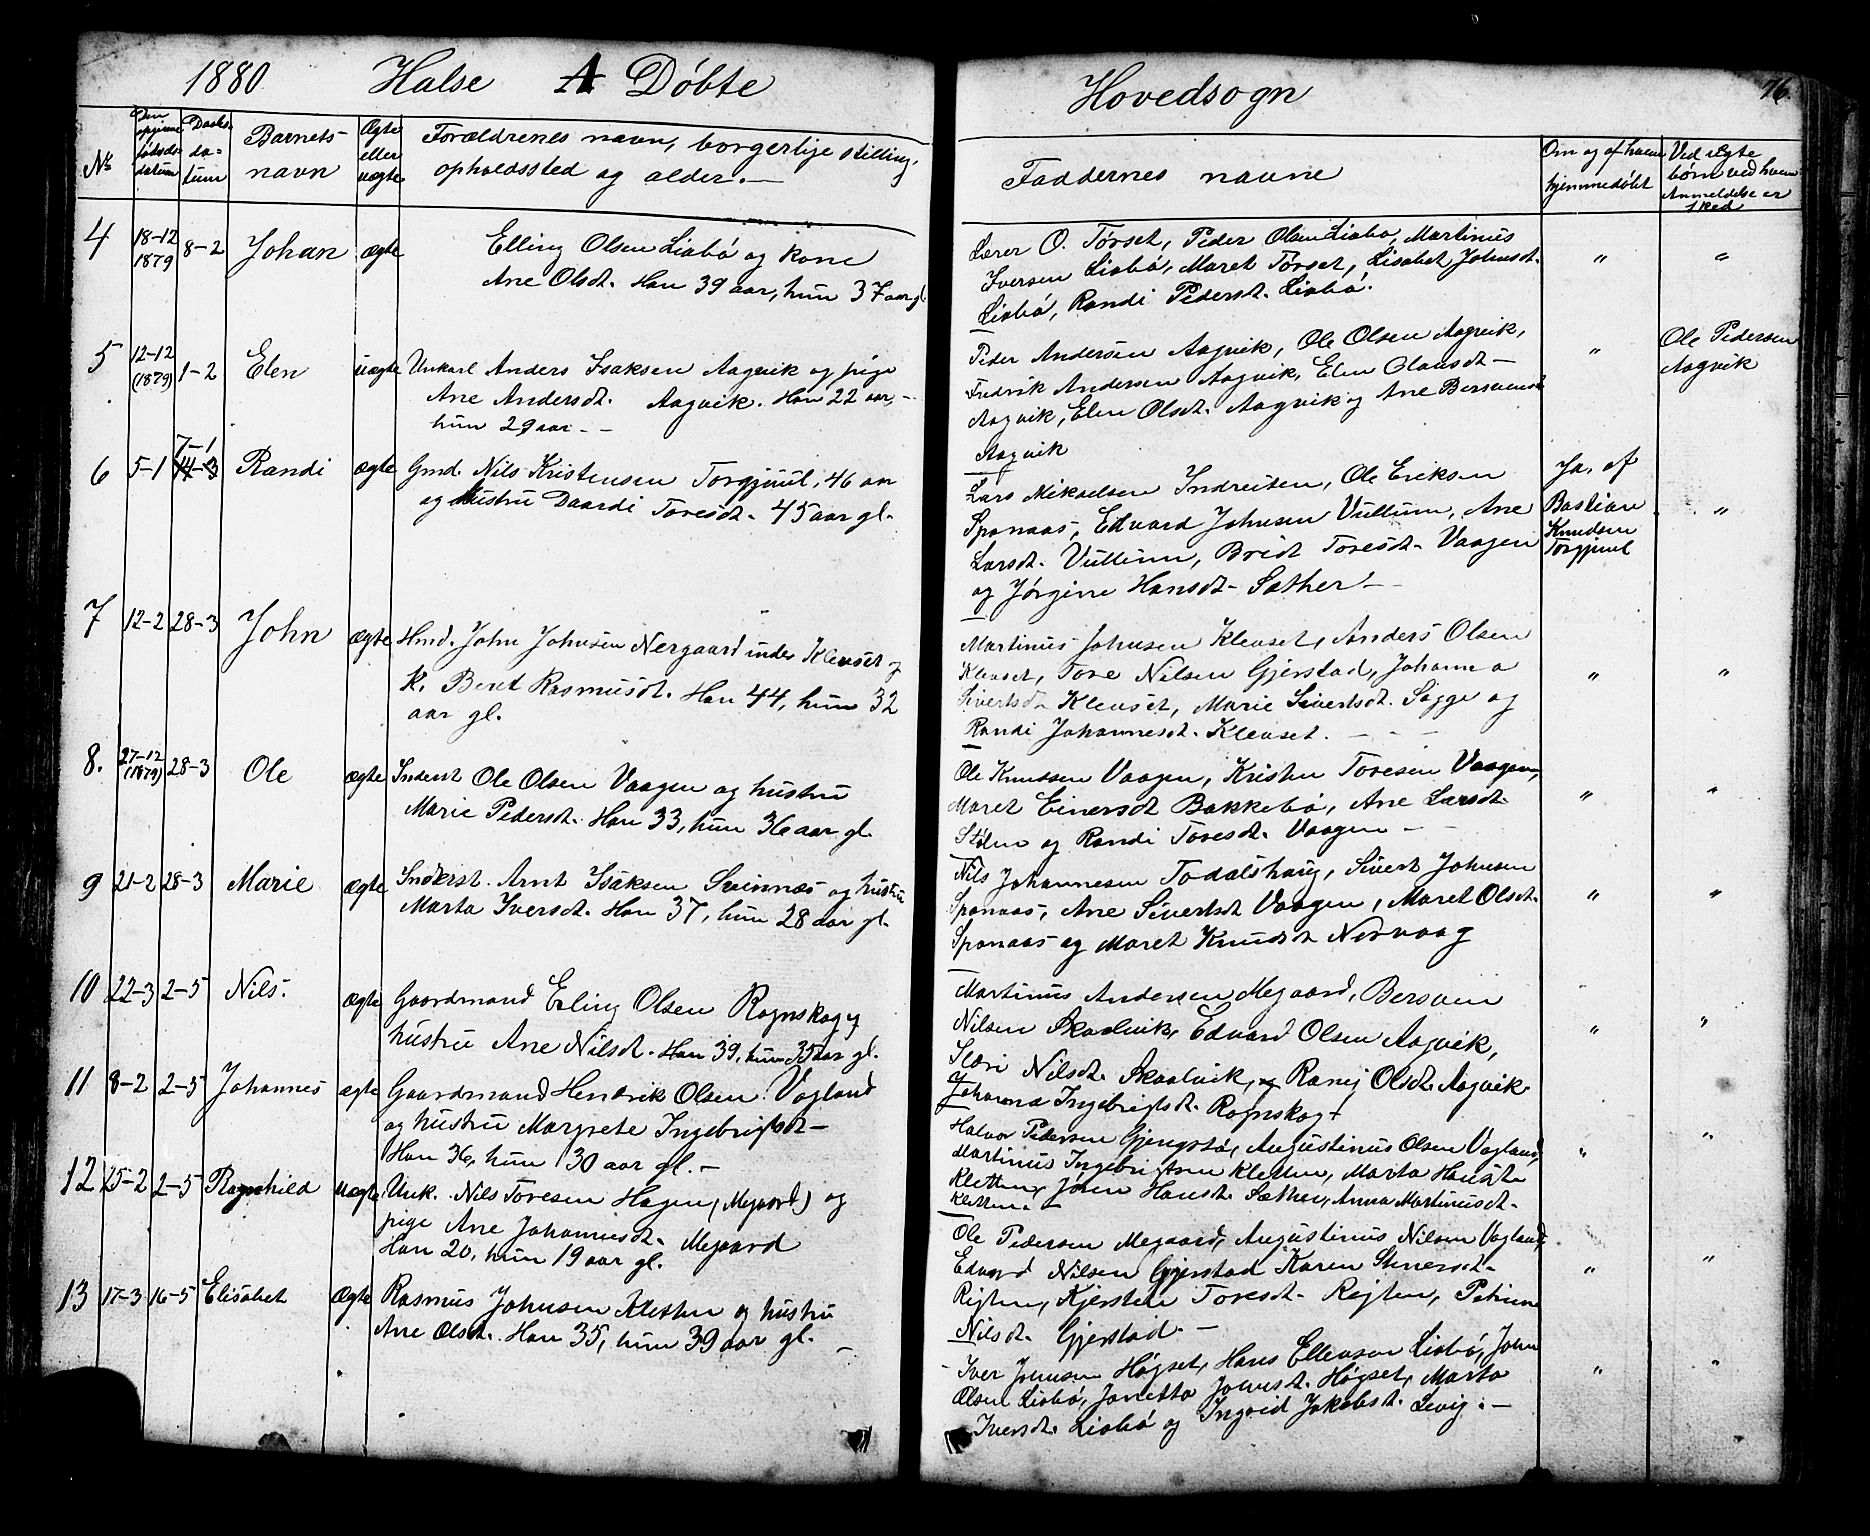 1880 Halse A Døbte
Hovedsogn
76.
No
Den opgivne fødselsdatum
Daabsdatum
Barnets navn
Ægte eller uægte
Forældrenes navn, borgerlige stilling,
opholdssted og alder.—
Faddernes navne
Om og af hvem
hjemmedøbt
Ved uægte
børn ved hvem
Anmeldelse er
sked
4 18-12 1879 8-2 Johan ægte
Elling Olsen Liabø og kone
Ane Olsdt. Han 39 aar, hun 37 aar gl.
Lærer O. Tørset, Peder Olsen Liabø, Martinus
Iversen Liabø, Maret Tørset, Lisabet Johnsdt.
Liabø, Randi Pedersdt. Liabø.
" "
5 12-12 (1879) 1-2 Elen uægte
Unkarl Anders Isaksen Aagvik og pige
Ane Andersdt. Aagvik. Han 22 aar,
hun 29 aar - -
Peder Andersen Aagvik, Ole Olsen Aagvik,
Fredrik Andersen Aagvik, Elen Olausdt-
Aagvik, Elen Olsdt. Aagvik og Ane Bersvendsdt
Aagvik
"
Ole Pedersen
Aagvik
6 5-1 7-1 14-3 Randi ægte
Gmd. Nils Kristensen Torgjuul, 46 aar
og hustru Daardi Toresdt. 45 aar gl.
Lars Mikaelsen Indreiten, Ole Eriksen
Spanaas, Edvard Johnsen Vullum, Ane
Larsdt. Vullum, Brit Toresdt. Vaagen
og Jørgine Hansdt. Sæther.—
Ja, af
Bastian
Knudsen
Torgjuul
"
7 12-2 28-3 John ægte
Hmd. John Johnsen Nergaard under Klevset og
k. Beret Rasmusdt. Han 44, hun 32
aar gl.
Martinus Johnsen Klevset, Anders Olsen
Klevset, Tore Nilsen Gjerstad, Johanna
Sivertsdr Klevset, Marie Sivertsdt. Sogge og
Randi Johannesdt. Klevset. - - -
" "
8. 27-12 (1879) 28-3 Ole ægte
Inderst Ole Olsen Vaagen og hustru
Marie Pedersdt. Han 33, hun 36 aar gl.
Ole Knudsen Vaagen, Kristen Toresen Vaagen,
Maret Einersdt Bakkebø, Ane Larsdt.
Stølen og Randi Toresdt. Vaagen -
" "
9 21-2 28-3 Marie ægte
Inderst. Arnt Isaksen Svinnæs og hustru
Marta Iversdt. Han 37, hun 28 aar gl.
Nils Johannesen Todalshaug, Sivert Johnsen
Spanaas, Ane Sivertsdt Vaagen, Maret Olsdt.
Spanaas og Maret Knudsdt Nervaag
" "
10 22-3 2-5 Nils. ægte
Gaardmand Erling Olsen Rognskog og
hustru Ane Nilsdt. Han 39, hun 35 aar gl.
Martinus Andersen Megaard, Bersvein
Nilsen Skaalvik, Edvard Olsen Aagvik,
Siri Nilsdt. Skaalvik, og Ranej Olsdt. Aagvik
og Johanna Ingebrigtsdt. Rognskog
" "
11 8-2 2-5 Johannes ægte
Gaardmand Hendrik Olsen Vagland
og hustru Margrete Ingebrigtsdt-
Han 36, hun 30 aar gl.-
Halvor Pedersen Gjengstø, Augustinus Olsen Vagland,
Martinus Ingebrigtsen Kletten, Marta Hansdt.
Kletten, Jøren Hansdt. Sæther, Anna Martinusdt-
Kletten.
" "
12 25-2 2-5 Ragnhild uægte
Unk. Nils Toresen Hagen (Megaard) og
pige Ane Johannesdt. Megaard
Han 20, hun 19 aar gl.
Ole Pedersen Megaard, Augustinus Nilsen Vagland,
Edvard Nilsen Gjerstad Karen Stenersdt-
Rigten, Kjersten Toresdt. Rigten, Petrine
Nilsdt. Gjerstad. -
" "
13 17-3 16-5 Elisabet Ægte
Rasmus Johnsen Kletten og hustru
Ane Olsdt. Han 35, hun 39 aar gl.
Iver Johnsen Høgset, Hans Ellevsen Liabø, John
Olsen Liabø, Janetta Johnsdt. Høgset, Marta
Iversdt. Liabø og Ingrid Jakobsdt. Levig. -
" "